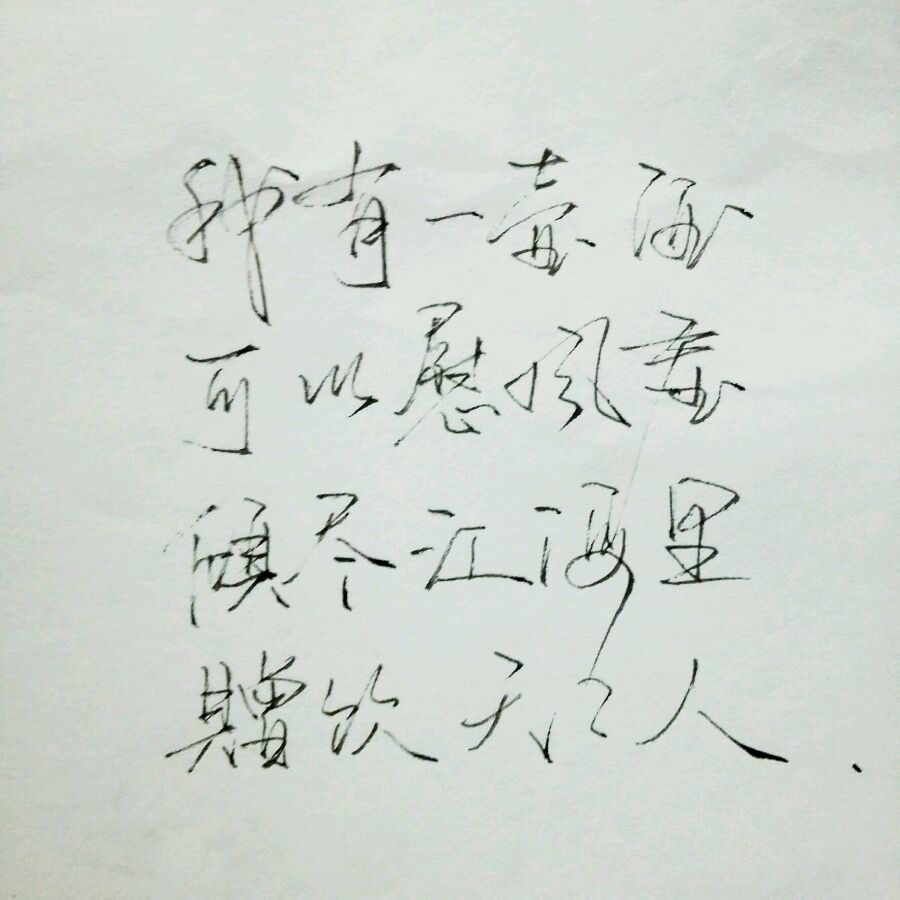 我有一壶酒
可以慰风尘
倾尽江海里
赠饮天下人.